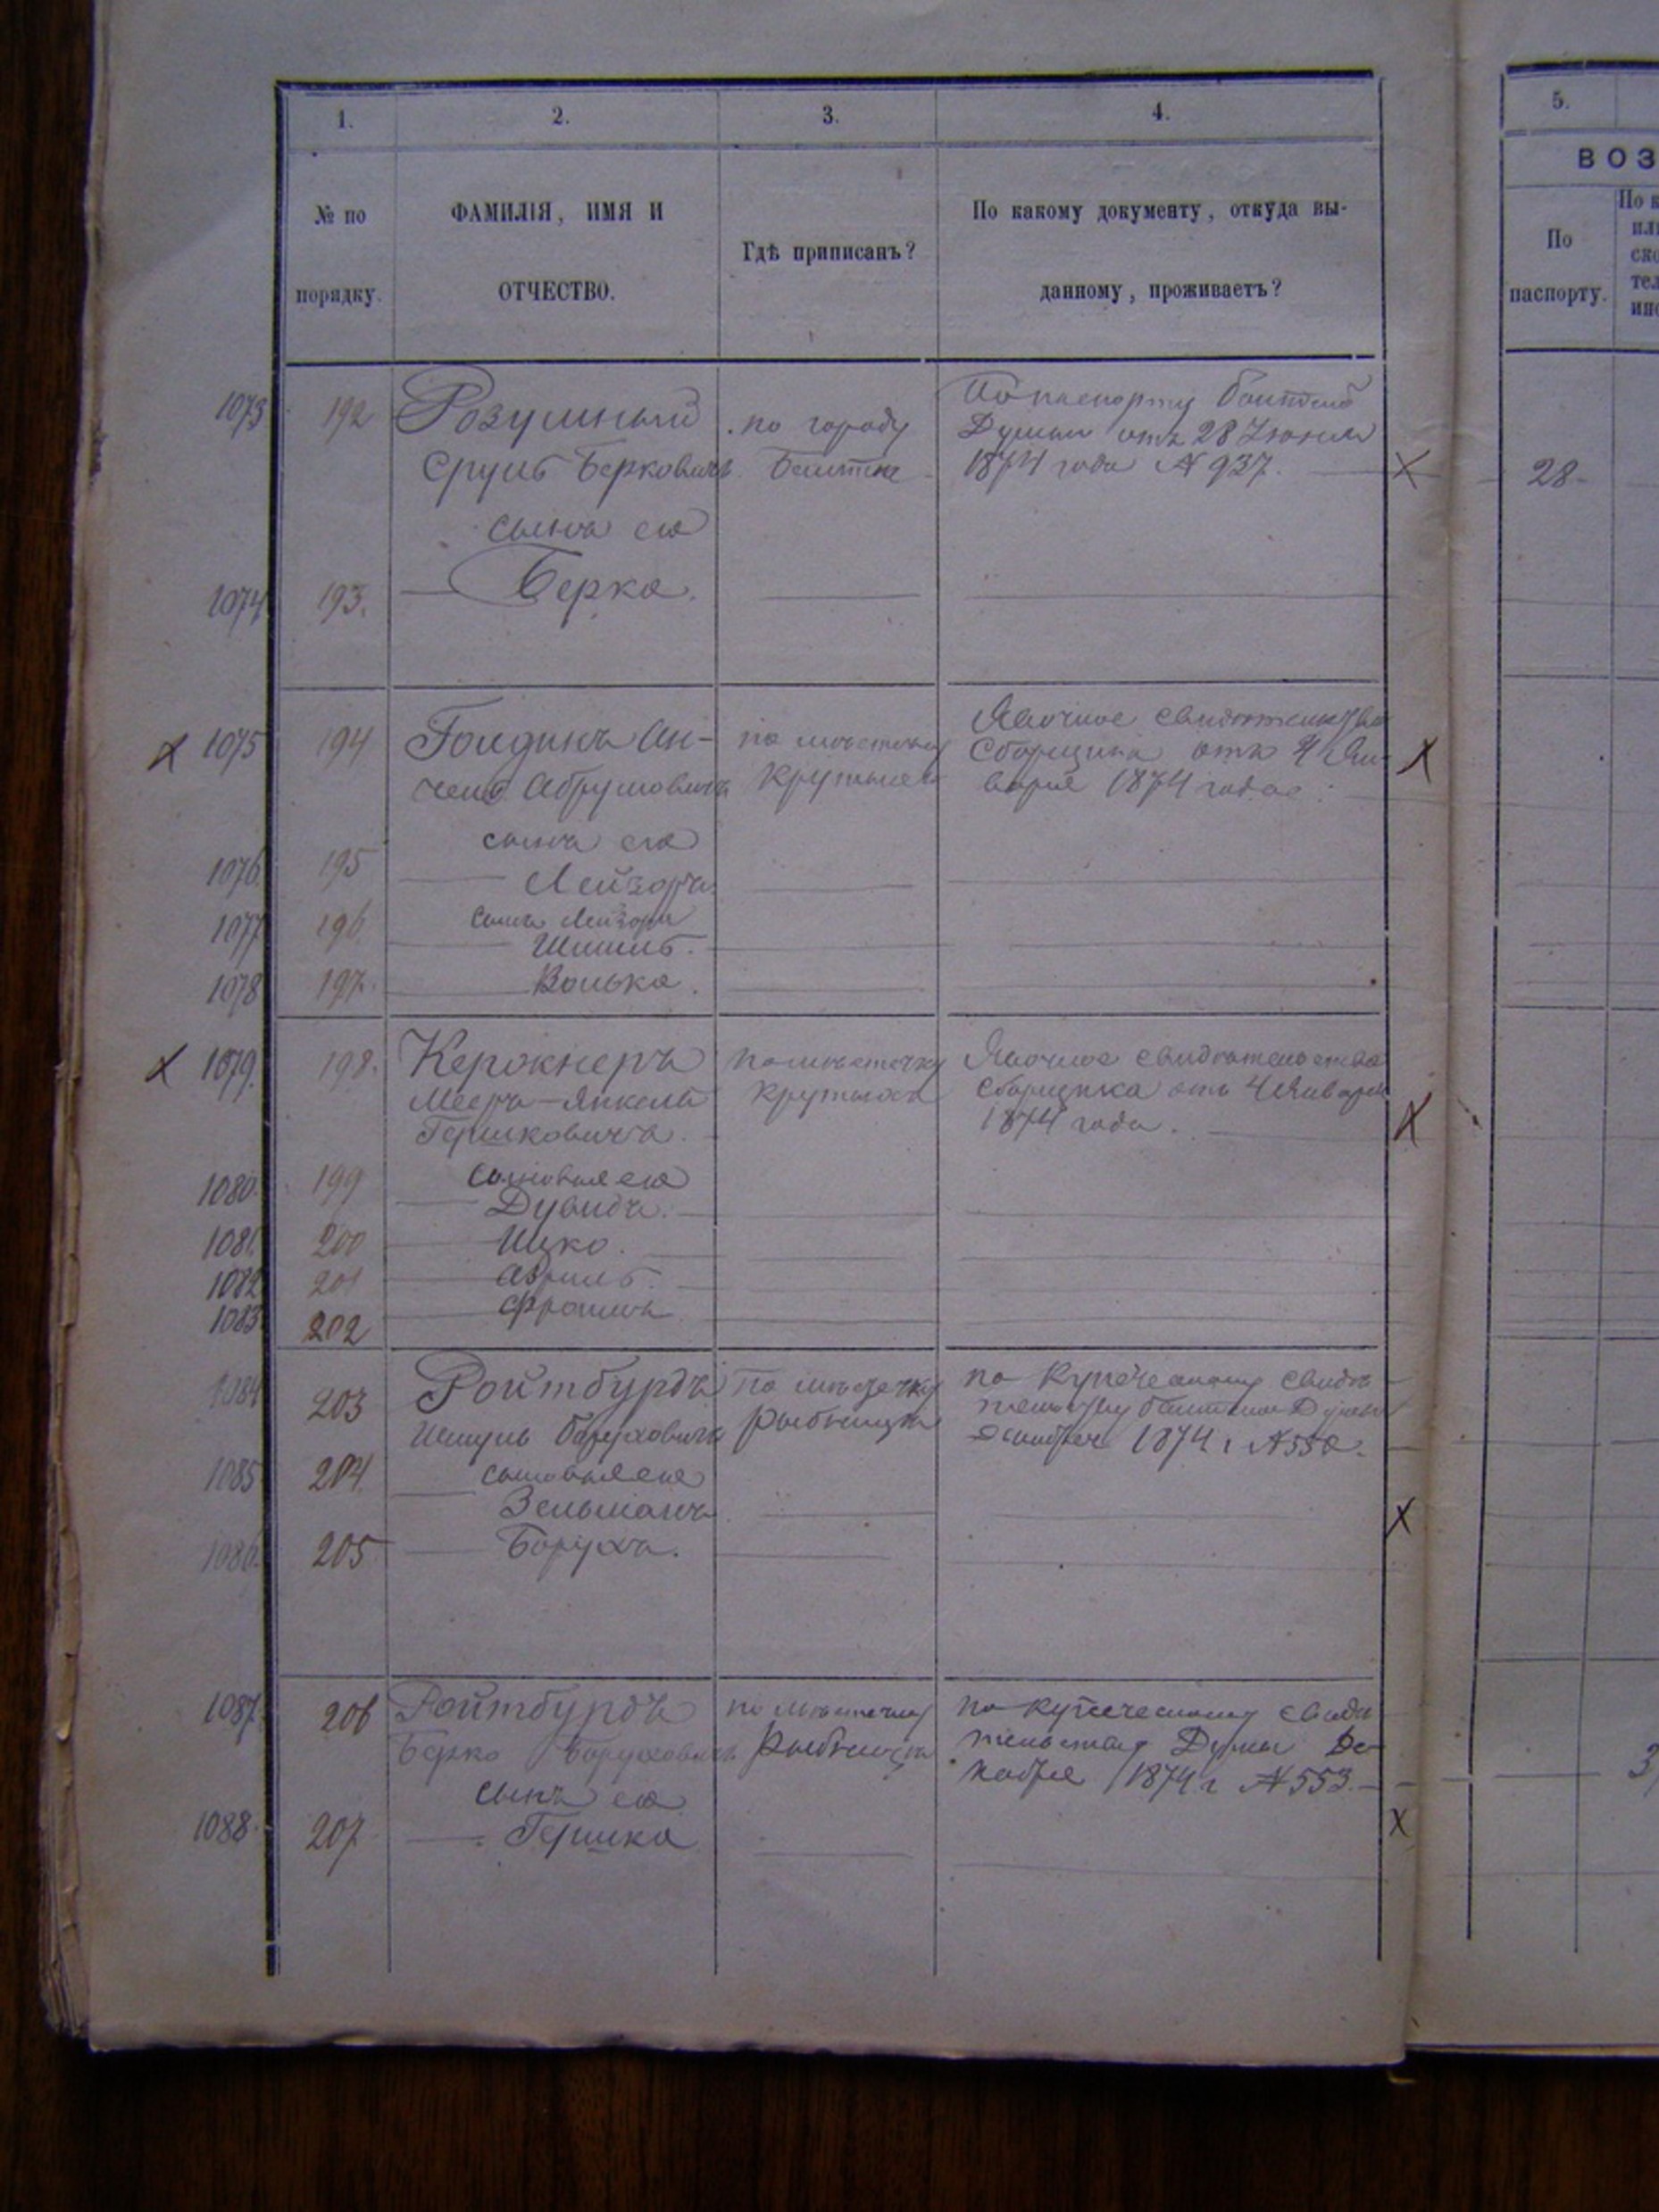 1. 2. 3. 4.
№ по порядку.
ФАМИЛІЯ, ИМЯ И ОТЧЕСТВО.
Гдѣ приписанъ?
По какому документу, откуда вы-
данному, проживаетъ?
5.
ВОЗ
По паспорту.
1073 192 Розумный по городу По паспорту Балтской
Срулъ Берковичъ Балтѣ Думы отъ 28 Іюня
1874 года № 937. 28
сынъ его
1074 193. Берка.
1075 194 Голдинъ Ан- по мѣстечку Явочное свидѣтельство
чель Абрумовичъ Крутымъ Сборщика отъ 4 Ян-
варя 1874 года
сынъ его
1076. 195 Лейзоръ.
сынъ Лейзора
1077 196. Шмиль.
1078 197. Волька.
1079. 198. по мѣстечку Явочное свидѣтельство
Мееръ-Янкель Крутымъ Сборщика отъ 4 Января
Гершковичъ. 1874 года.
1080. 199 сыновья его
Дувидъ.
1081. 200 Ицко.
1082 201
1083 202 Фроимъ
1084 203 Ройтбурдъ по мѣстечку по купеческому свидѣ-
Шмуль Боруховичъ Рыбница тельству Балтской Думы
Декабря 1874 г № 550.
1085 204. сыновья его
Зельманъ
1086. 205 Борухъ.
1087 206 Ройтбурдъ по мѣстечку по купеческому свидѣ-
Берко Боруховичъ Рыбница тельству Думы Де-
кабря 1874 г № 553.
сынъ его
1088. 207 Гершко